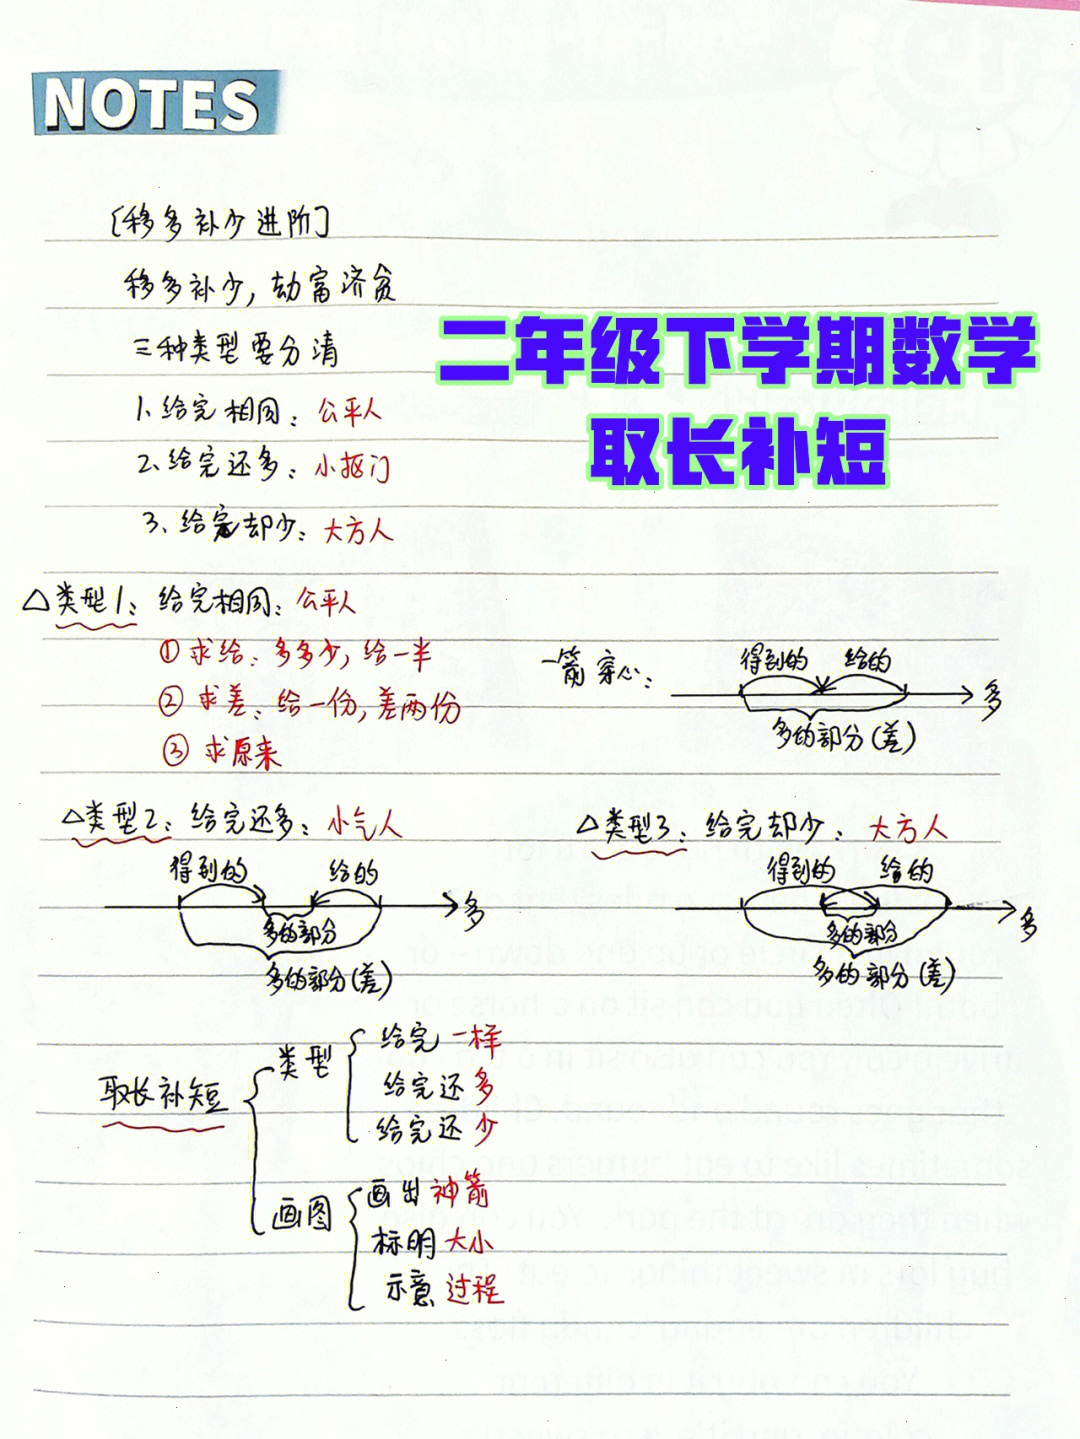 NOTES
二年级下学期数学
取长补短
[移多补少进阶]
移多补少,劫富济贫
三种类型要分清
1、给完相同:公平人
2、给完还多:小抠门
3、给完却少:大方人
△类型1:给完相同:公平人
①求给:多多少,给一半
②求差:给一份,差两份
③求原来
一箭穿心:
得到的 给的
多
多的部分(差)
△类型2:给完还多:小气人
得到的 给的
多
多的部分
多的部分(差)
△类型3:给完却少:大方人
得到的 给的
多
多的部分
多的部分(差)
取长补短
类型
给完一样
给完还多
给完还少
画图
画出神箭
标明大小
示意过程